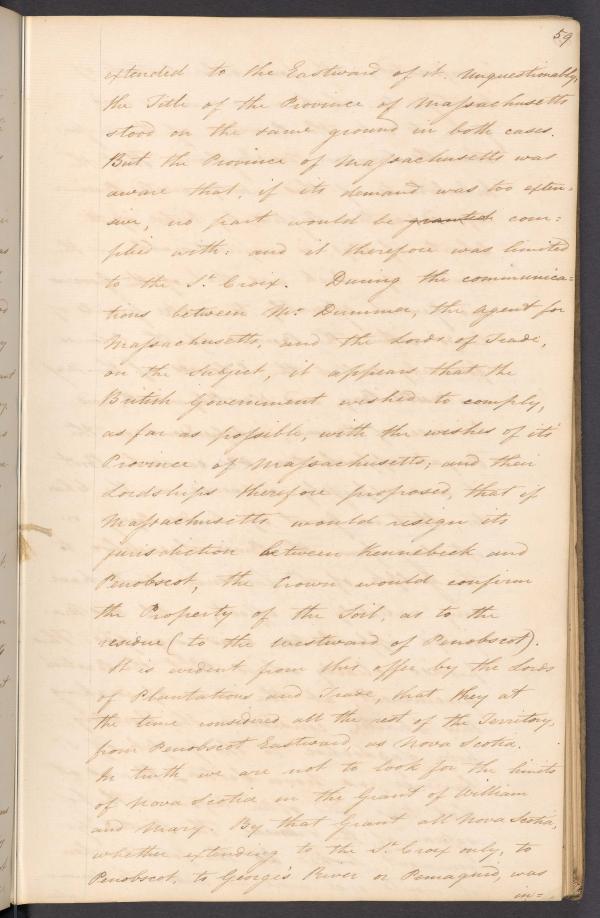 59
extended to the Eastward of it. Unquestionably,
the Title of the Province of Massachusetts
stood on the same ground in both cases.
But the Province of Massachusetts was
aware that, if its demand was too exten-
sive, no part would be granted com=
plied with: and it therefore was limited
to the St. Croix. During the communica=
tions between Mr. Dummer, the Agent for
Massachusetts, and the Lords of Trade,
on the subject, it appears that the
British Government wished to comply,
as far as possible, with the wishes of its
Province of Massachusetts; and their
Lordships therefore proposed, that if
Massachusetts would resign its
jurisdiction between Kennebeck and
Penobscot, the Crown would confirm
the Property of the Soil, as to the
residue (to the westward of Penobscot).
It is evident from this offer by the Lords
of Plantations and Trade, that they at
the time considered all the rest of the Territory,
from Penobscot Eastward, as Nova Scotia.
In truth we are not to look for the limits
of Nova Scotia in the Grant of William
and Mary. By that Grant all Nova Scotia,
whether extending to the St. Croix only, to
Penobscot, to George's River or Pemaquid, was
in=